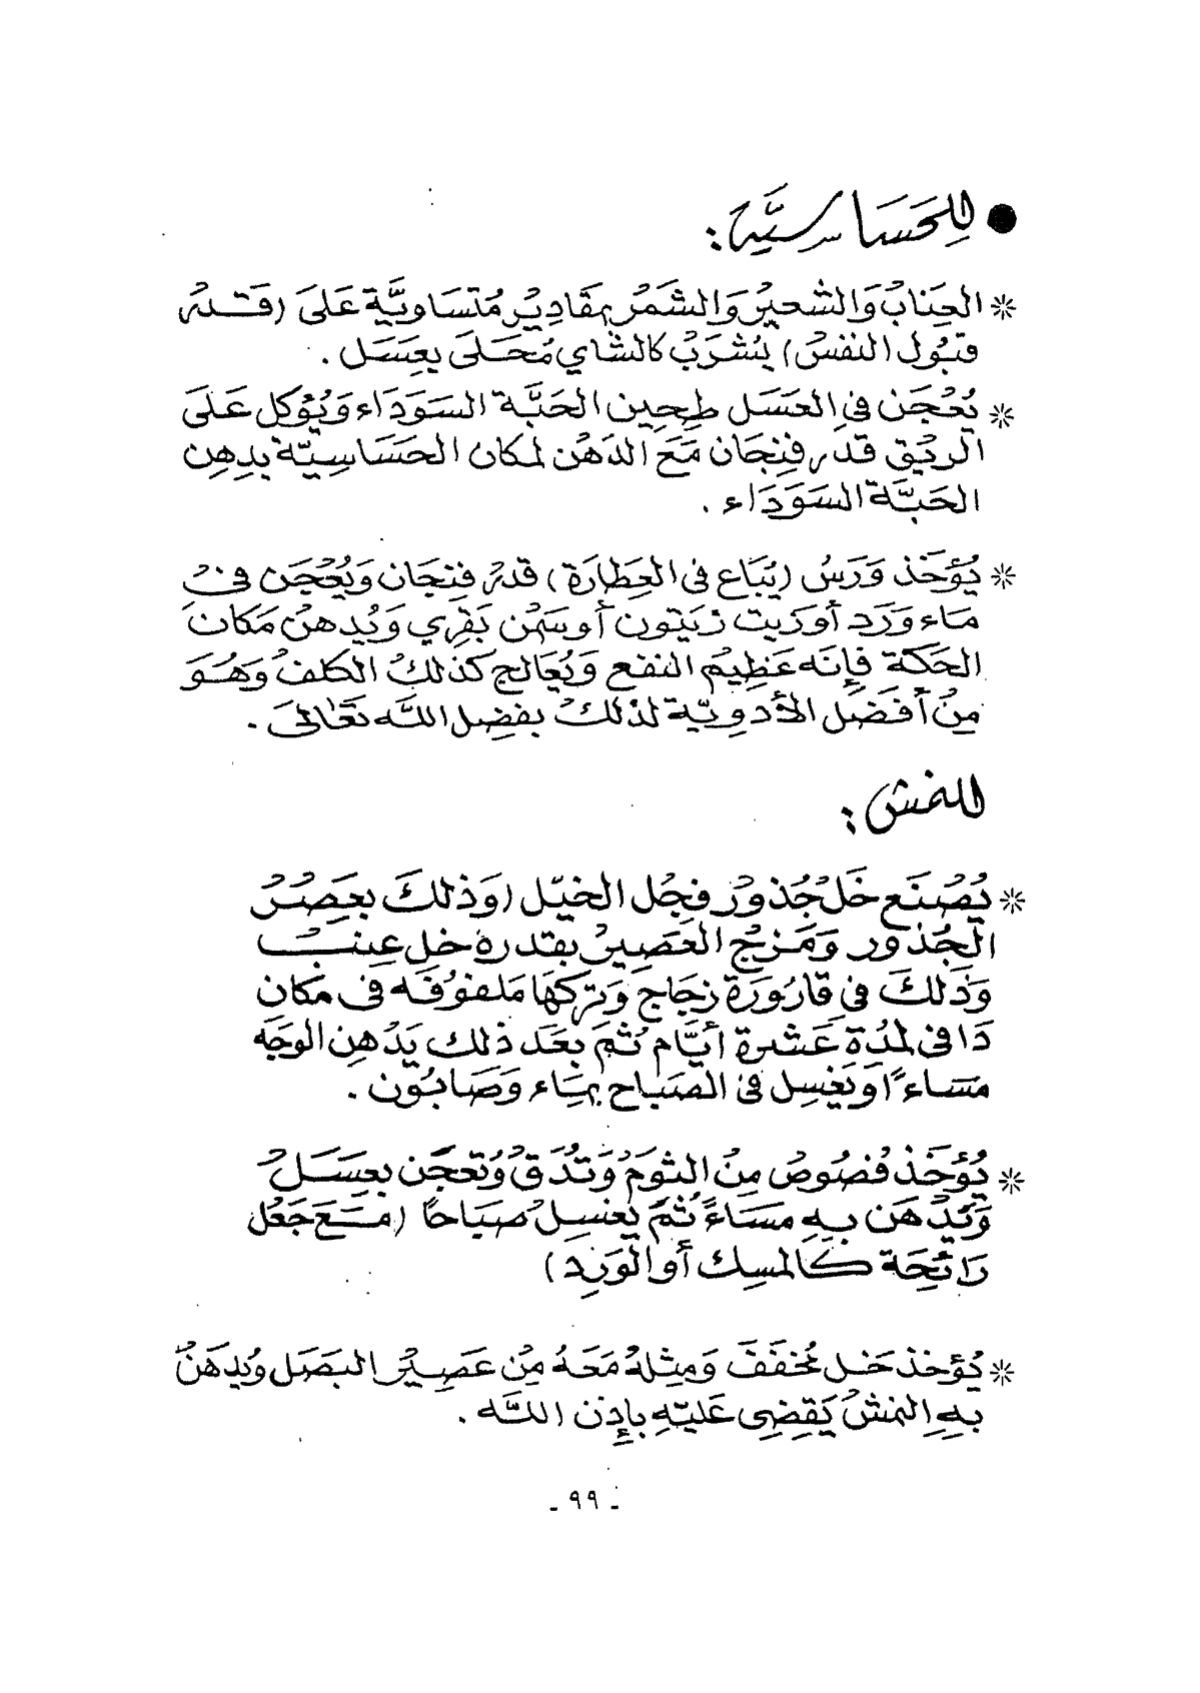 ● لِلحَسَاسِيَّة :
* العِنابُ وَالشعيرُ وَالشمَرُ بمقَادِيرُ مُتسَاويَّة عَلَى (قَدْرُ
قبُول النفسُ) يُشرَبُ كالشاي مُحَلَى بِعَسَل .
* يُعْجَن في العَسَل طحِين الحَبَّة السَوَدَاء وَيُؤكل عَلَى
الريْق قدر فِنجَان مَعَ الدَهْن لمكان الحَسَاسِيَّة بِدهِن
الحَبَّة السَوَدَاء .
* يُؤخَذ وَرَسُ (يُبَاع في العِطارَة) قدرُ فِنجَان وَيُعْجَن في
مَاء وَرَد أو زَيت زيَتون أو سَمْن بَقرِي وَيُدهنُ مَكان
الحَكة فإنَه عَظِيمُ النفع وَيُعَالج كذلكُ الكلفُ وَهُوَ
مِنُ أفضَل الأدوِيّة لذلكُ بفضِل اللَّه تعَالىَ .
للنمش :
* يُصْنَع خَلُ جُذورُ فجُل الخيّل (وَذلكَ بعَصْرُ
الجُذور وَمَزجُ العَصِيرُ بقدرهِ خل عِنبُ
وَذَلكَ في قارُورَة زجَاج وَتركهَا مَلفوُفَه في مَكان
دَافى لمُدّةِ عَشرة أيَّام ثمَ بعَد ذلك يَدُهِن الوجَه
مسَاءً وَيَغسِل في الصبَاح بمِاء وَصَابُون .
* يُؤخَذ فُصُوصُ مِنُ الثومَ وَتُدَقُ وَتُعجَن بعِسَلُ
وَيَدُهَن بِهِ مسَاءً ثمَ يُغسِلُ صبَاحًا (مَعَ جَعُل
رَائحِة كالمسِك أو الوَرِد)
* يُؤخذ خل مُخفَفَ وَمِثلهُ مَعَهُ مِن عَصِيرُ البَصَل وَيُدهَنُ
بهِ النمشُ يَقضِي عَليَهِ بإذن اللَّه .
- ٩٩ -